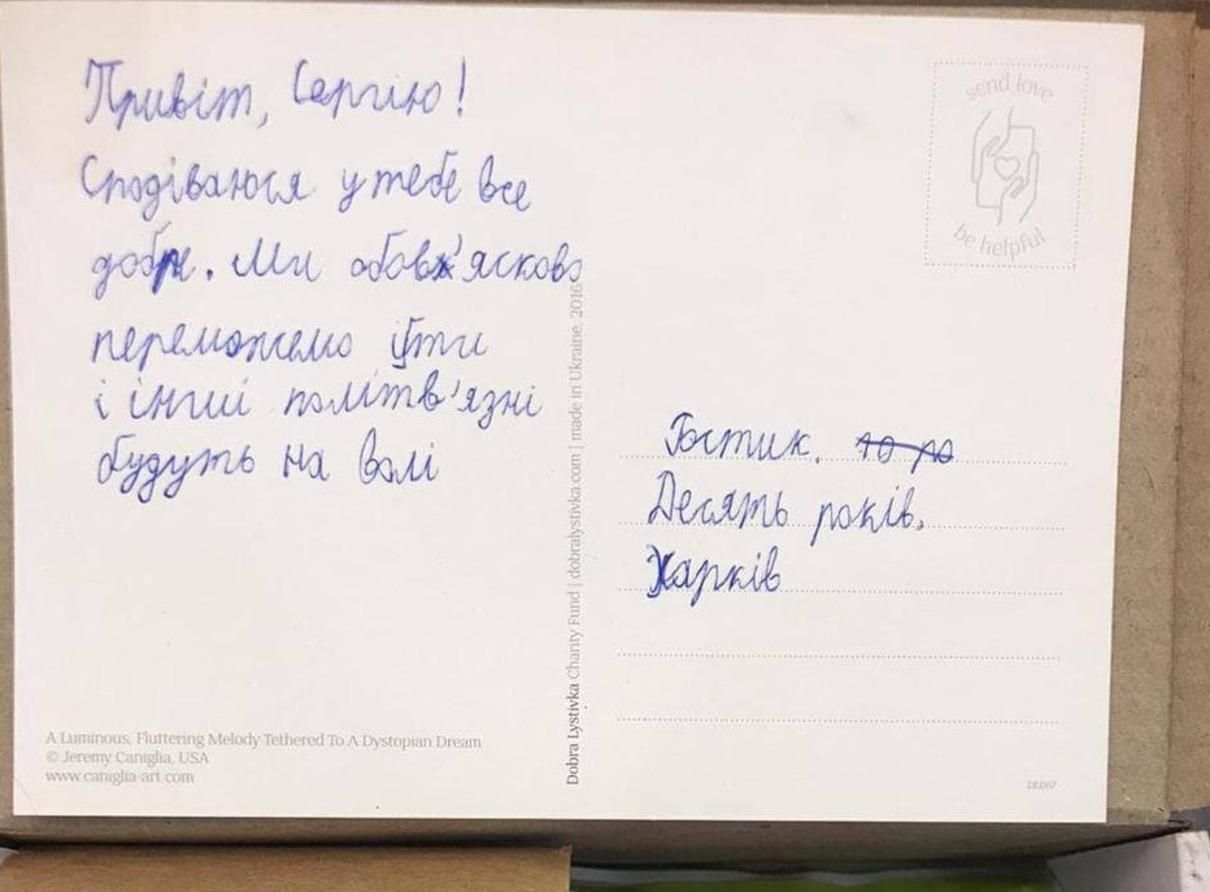 Привіт, Сергію!
Сподіваюся у тебе все
добре. Ми обов'ясково
переможемо і ти
і інші політв'язні
будуть на волі
send love
be helpful
Ростик.
Десять років,
Харків
Dobra Lystivka Charity Fund | dobralystivka.com | made in Ukraine, 2016
A Luminous, Fluttering Melody Tethered To A Dystopian Dream
© Jeremy Caniglia, USA
www.caniglia-art.com